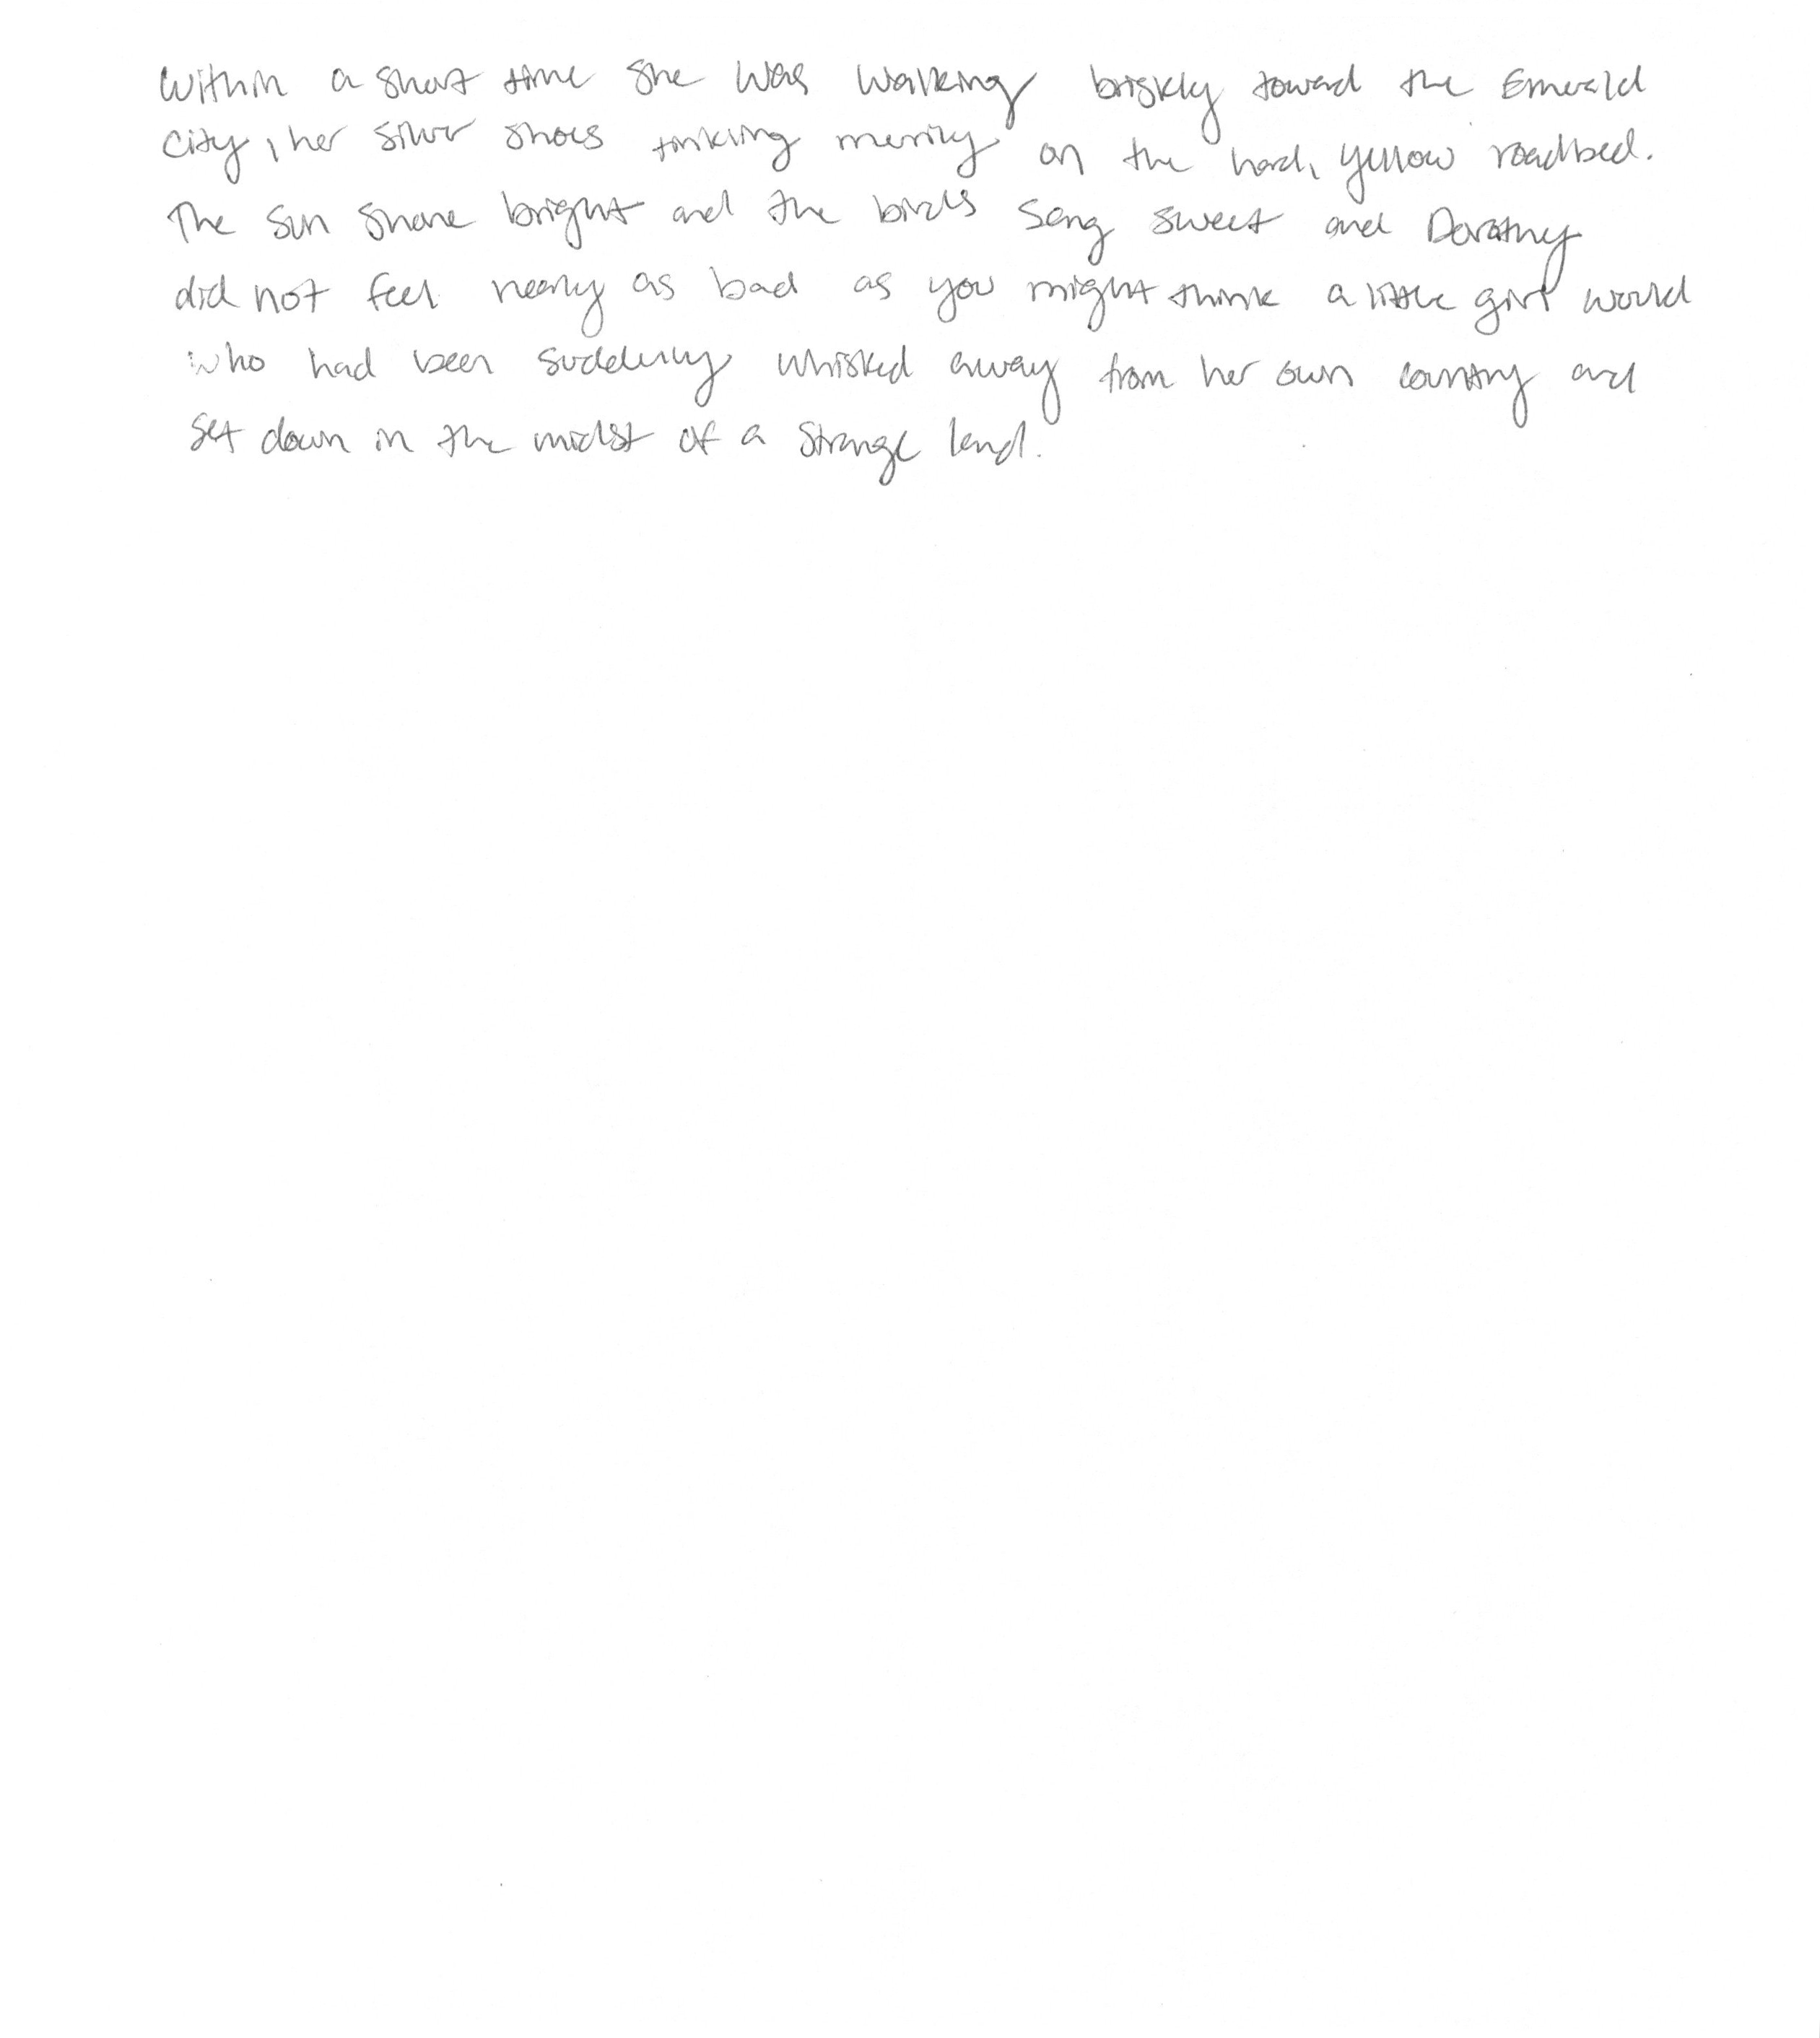 Within a short time she was walking briskly toward the Emerald
City, her silver shoes tinkling merrily on the hard, yellow roadbed.
The sun shone bright and the birds sang sweet and Dorothy
did not feel nearly as bad as you might think a little girl would
who had been suddenly whisked away from her own country and
set down in the midst of a strange land.